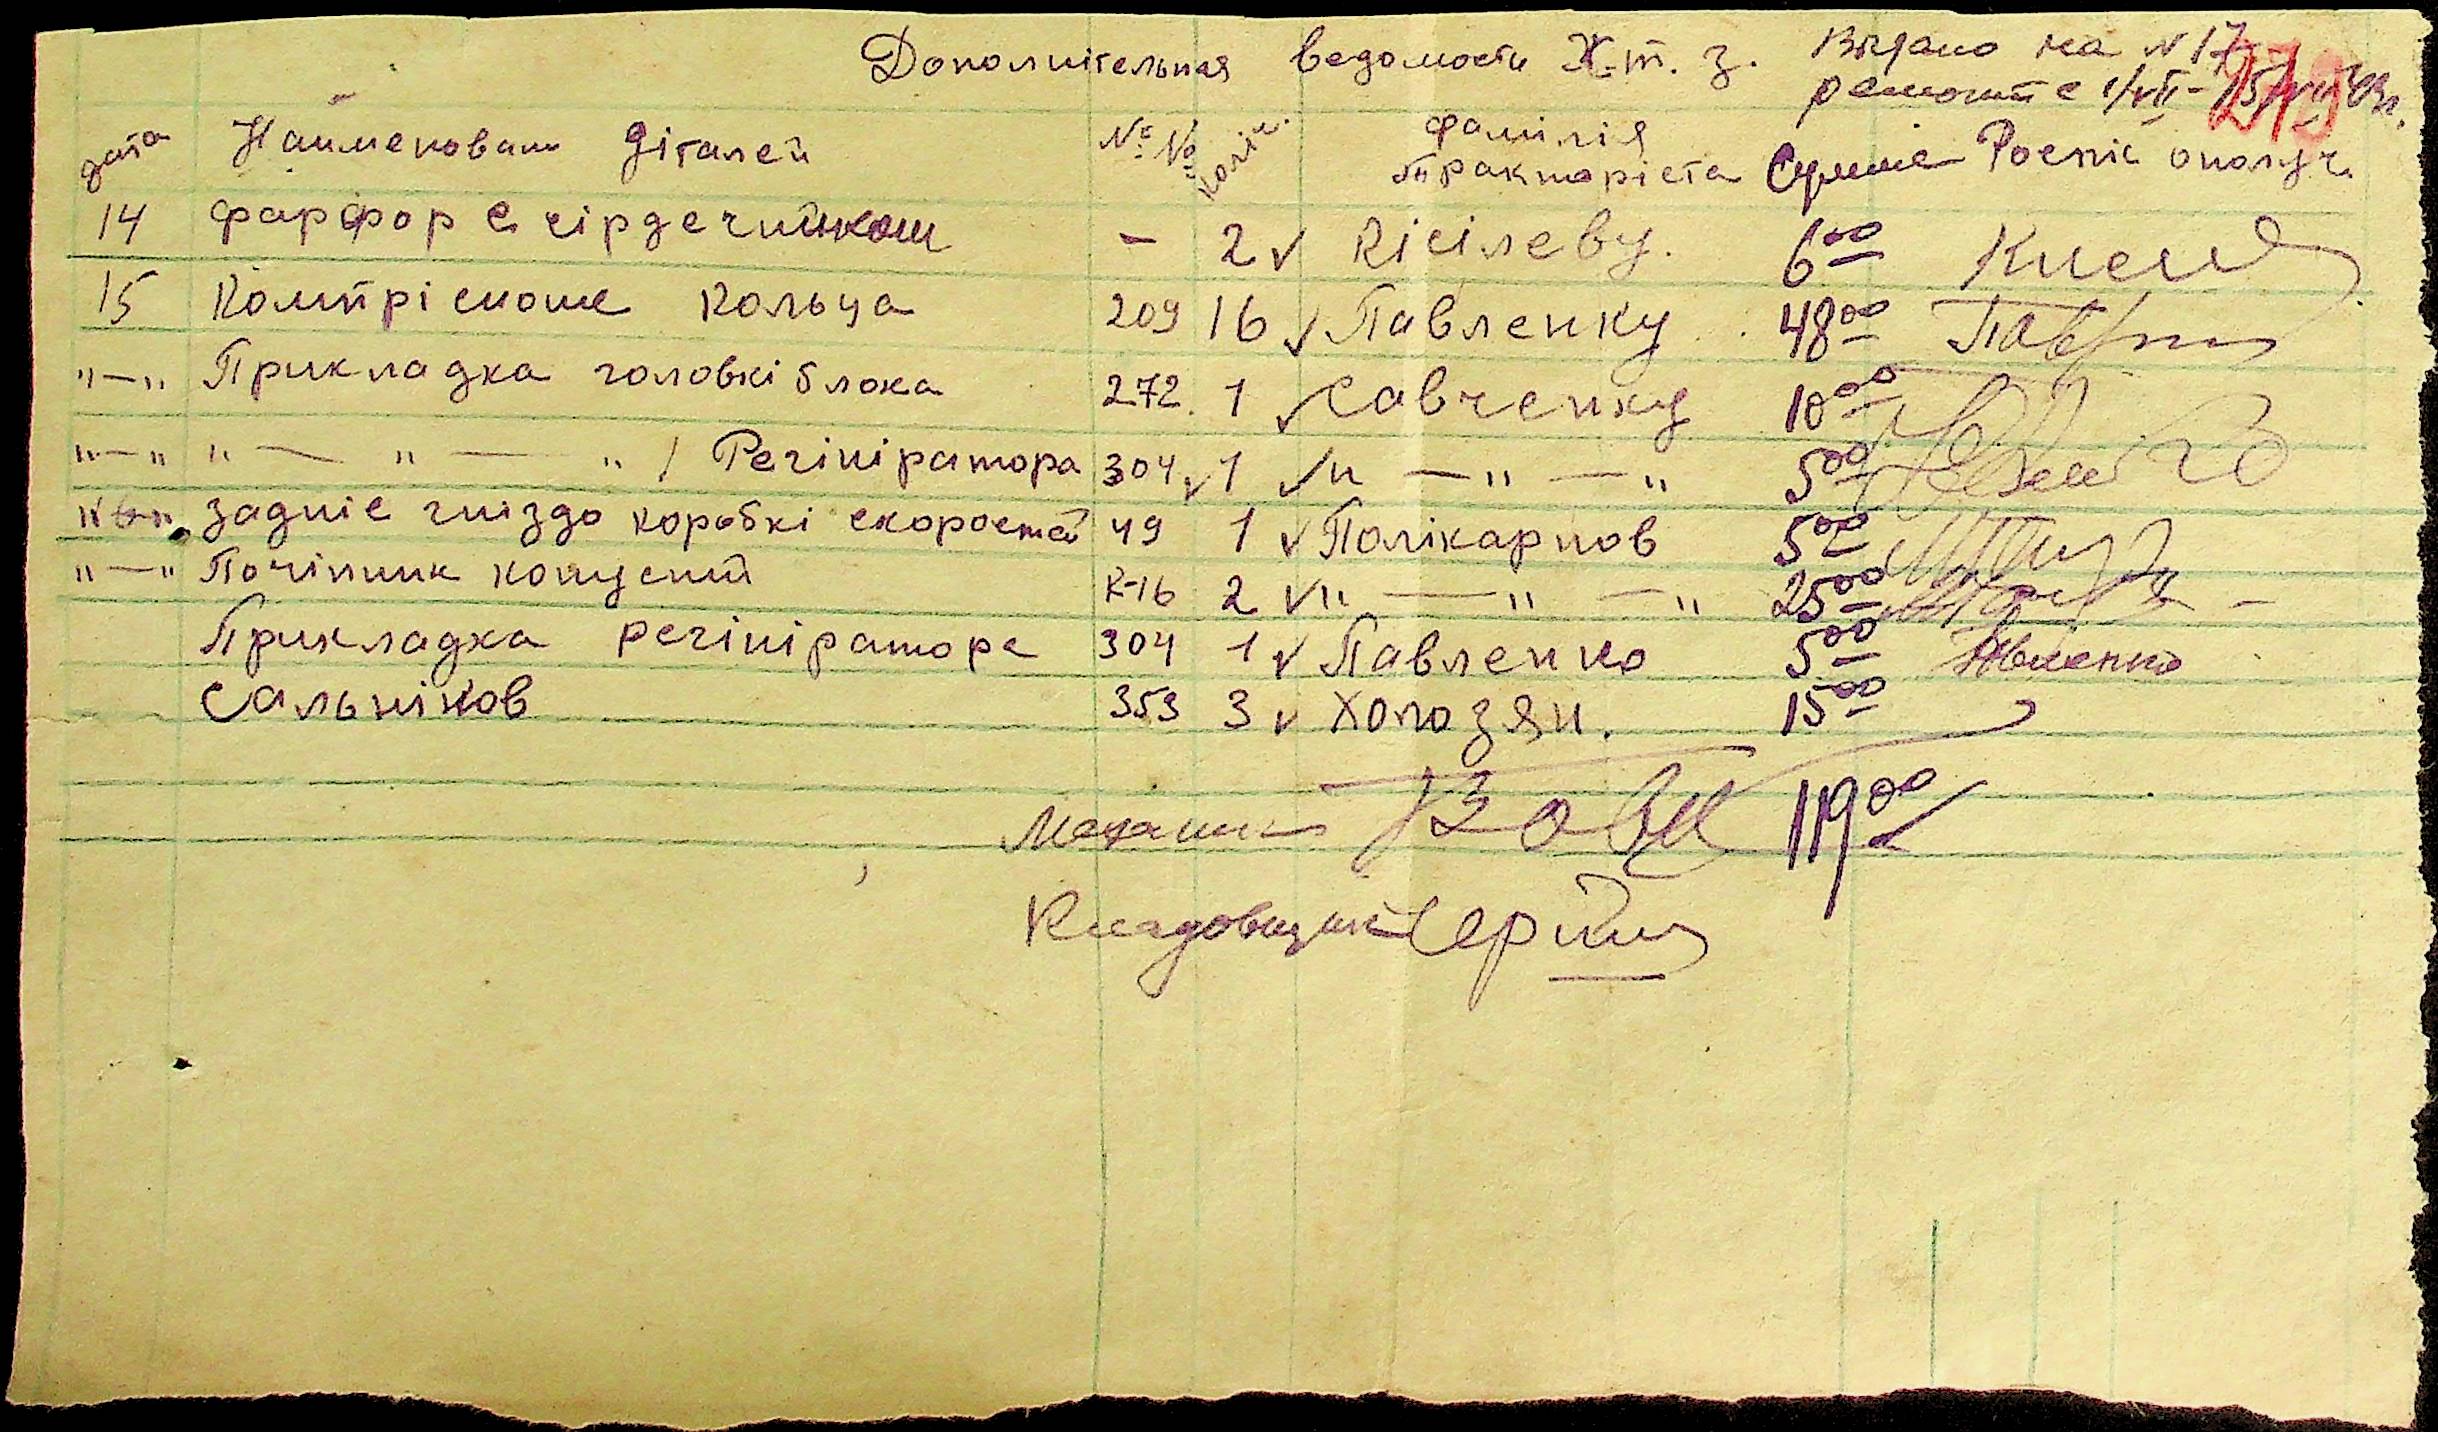 Дополнітельная ведомость Х.т.з. Видано на N 17
ремонт с 1/VII - 15/VII
279
дата Наименовани діталей №№ коліч. фамілія тракторіста Сумма Роспіс ополуч.
14 фарфор с сірдечником - 2 ✓ Кісілеву. 6 00 Кисел
15 Компрісионие Кольца 209 16 ✓ Павленку 48 00
"-" Прикладка головкі блока 272. 1 ✓ Савченку 10 00
"-" " — " — " / Регініратора 304 ✓ 1 ✓ " — " — " 5 00
задніе гніздо коробкі скоростей 49 1 ✓ Полікарпов 5 00
"-" Почіпник конусний К-16 2 ✓ " — " — " 25 00
Прикладка регініратора 304 1 ✓ Павленко 5 00 Павленко
Сальніков 353 3 ✓ Холозян. 15 00
Механик 119 00
Кладовщик